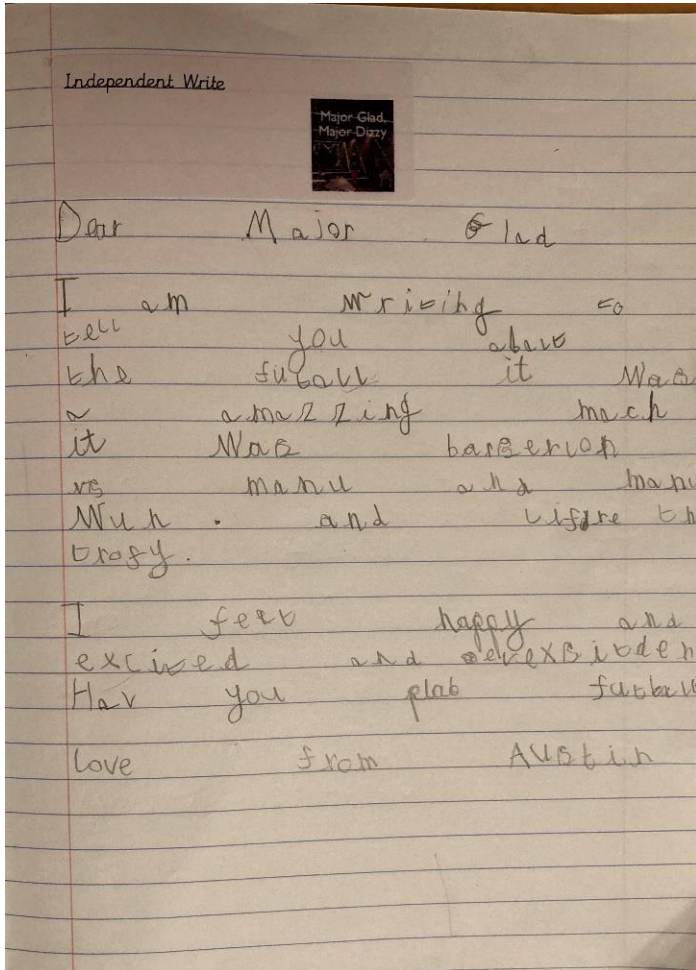 Independent Write
Major Glad,
Major Dizzy
Dear Major Glad
I am writing to
tell you abaut
the futball it was
a amazzing mach
it was barserlon
vs manu and manu
Wun . and lifte th
trofy.
I felt happy and
excited and
Hav you plab futball
love from Austin